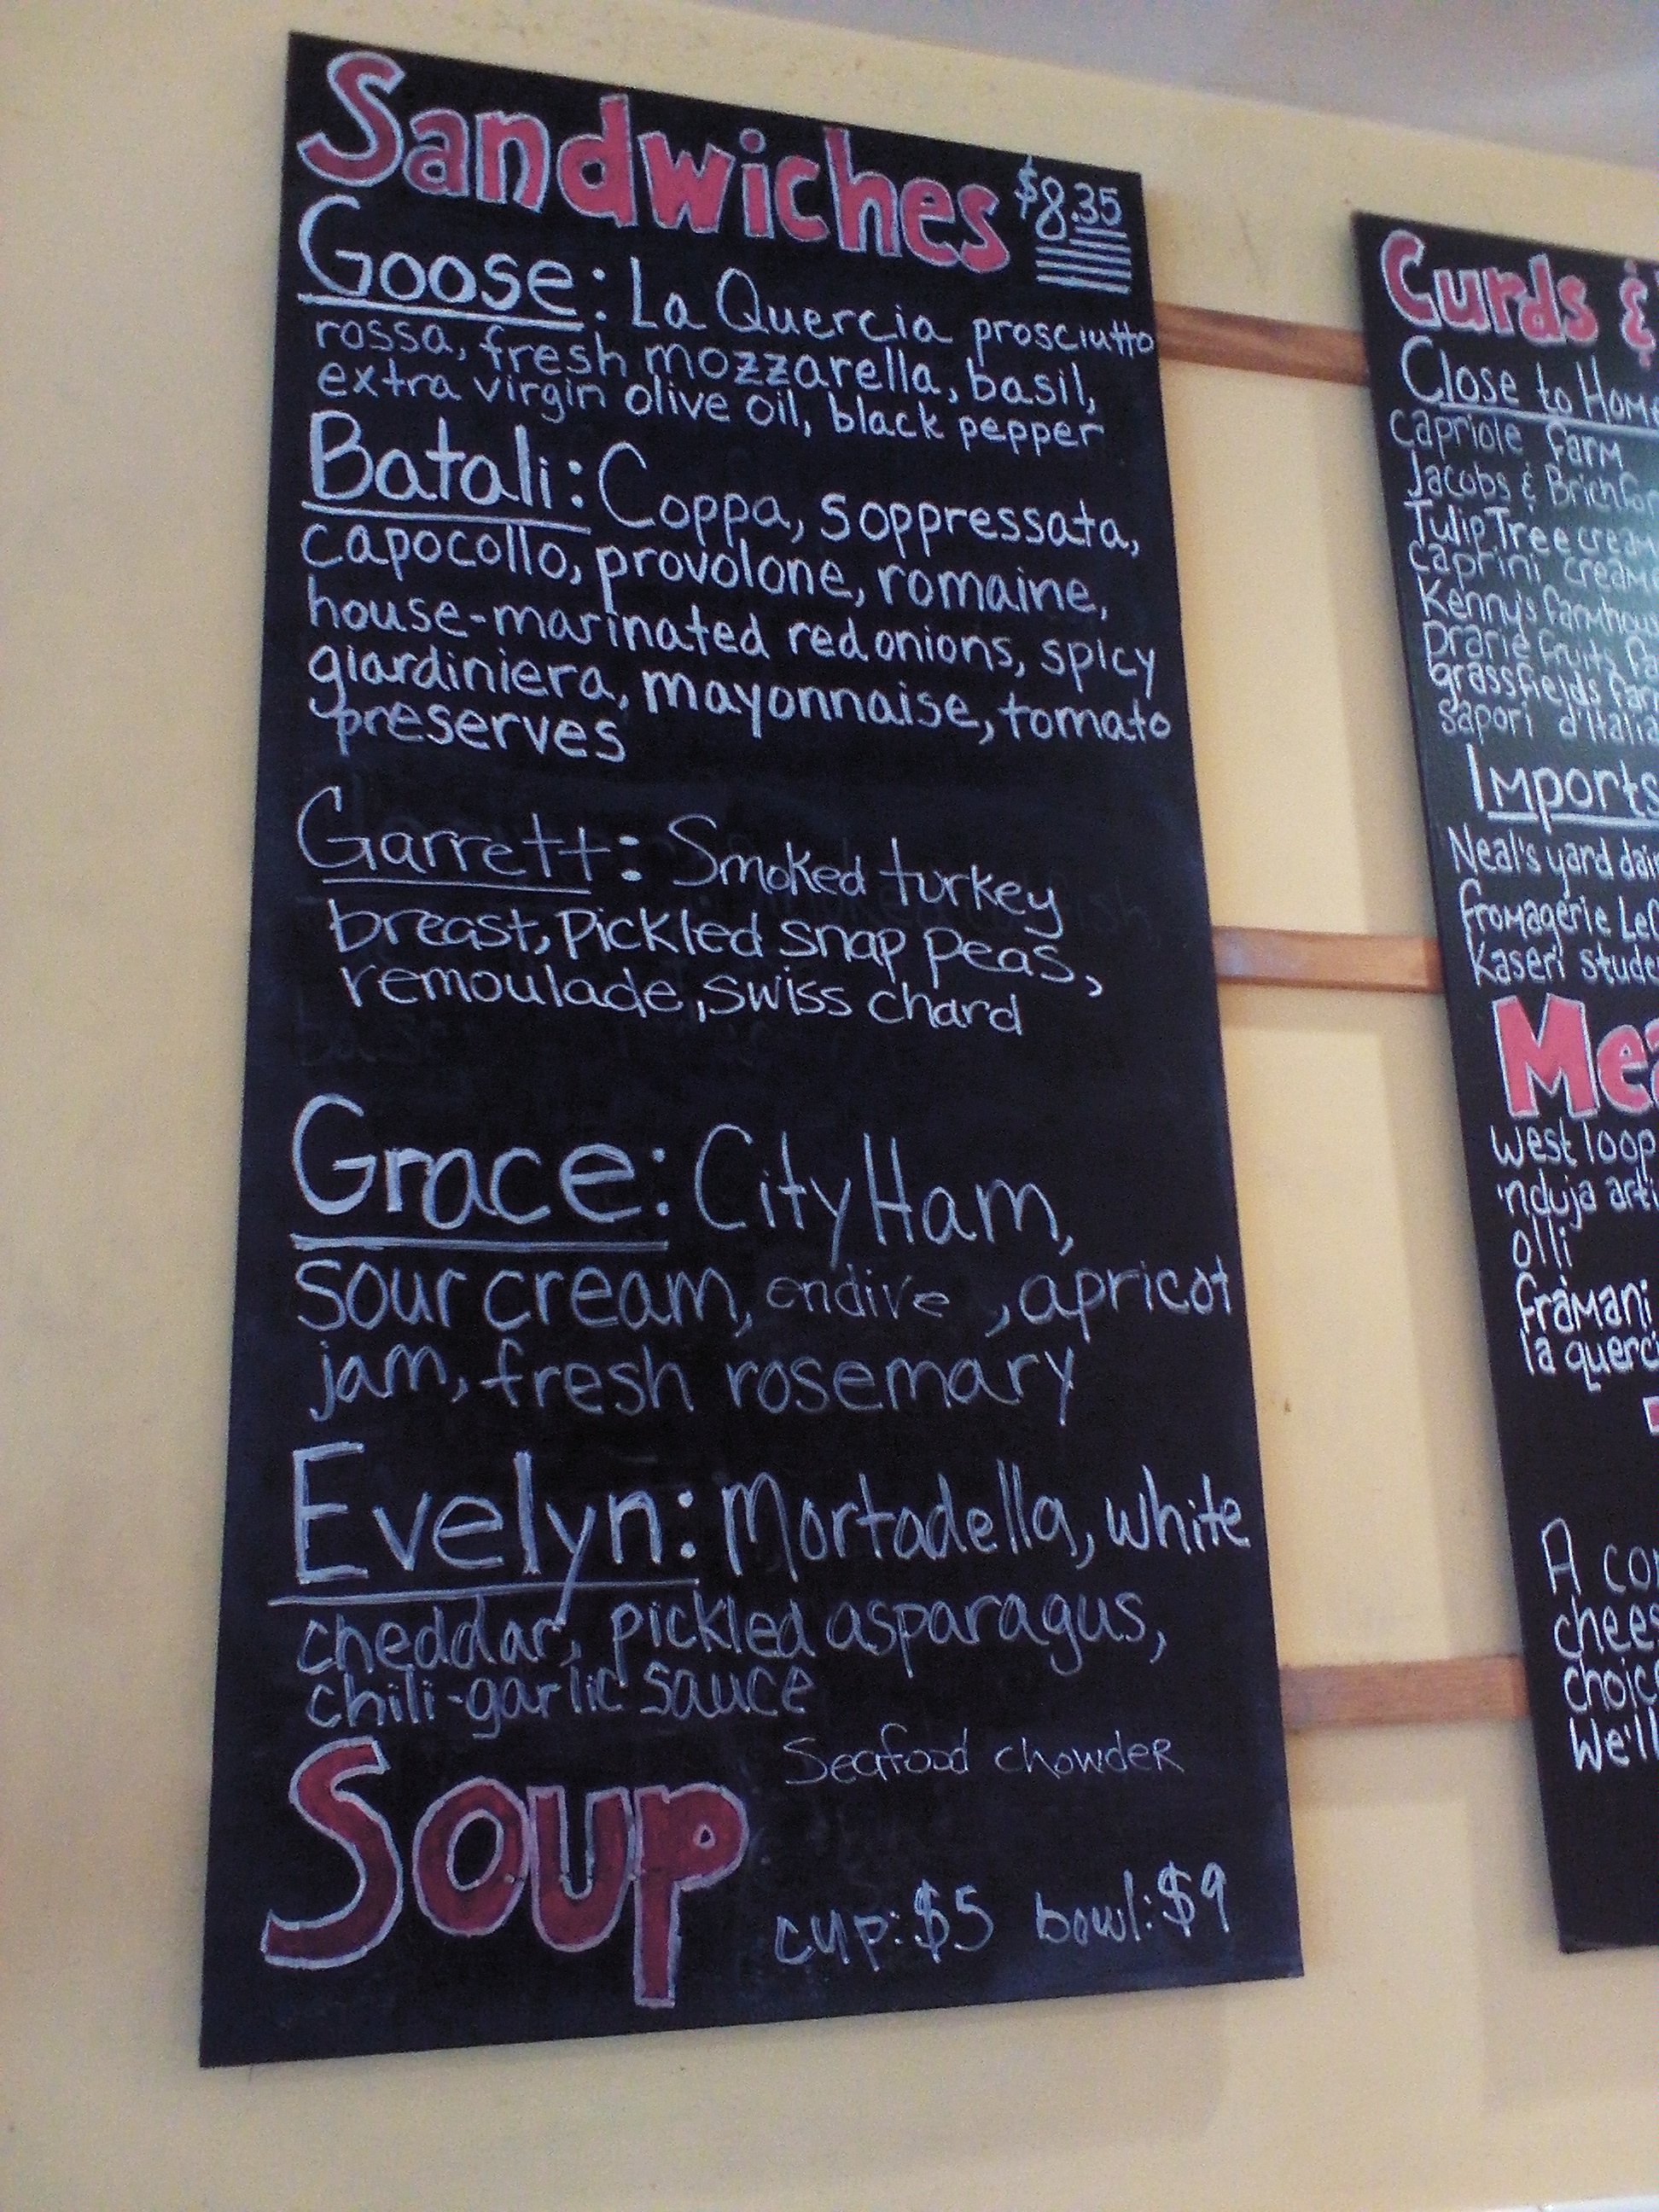 Sandwiches $8.35
Goose: La Quercia prosciutto
rossa, fresh mozzarella, basil,
extra virgin olive oil, black pepper
Batali: Coppa, soppressata,
capocollo, provolone, romaine,
house-marinated red onions, spicy
giardiniera, mayonnaise, tomato
preserves
Garrett: Smoked turkey
breast, Pickled snap peas,
remoulade, swiss chard
Grace: City Ham,
sour cream, endive, apricot
jam, fresh rosemary
Evelyn: Mortadella, white
cheddar, pickled asparagus,
chili-garlic sauce
Soup
Seafood chowder
cup: $5 bowl: $9
Curds &
Close to
capriole farm
Jacobs &
Tulip Tree
caprini
Kenny's
prarie fruits
grassfields
sapori d'Italia
Imports
Neal's yard
fromagerie
Kaseri
West loop
'nduja
olli
framani
la
A
We'll